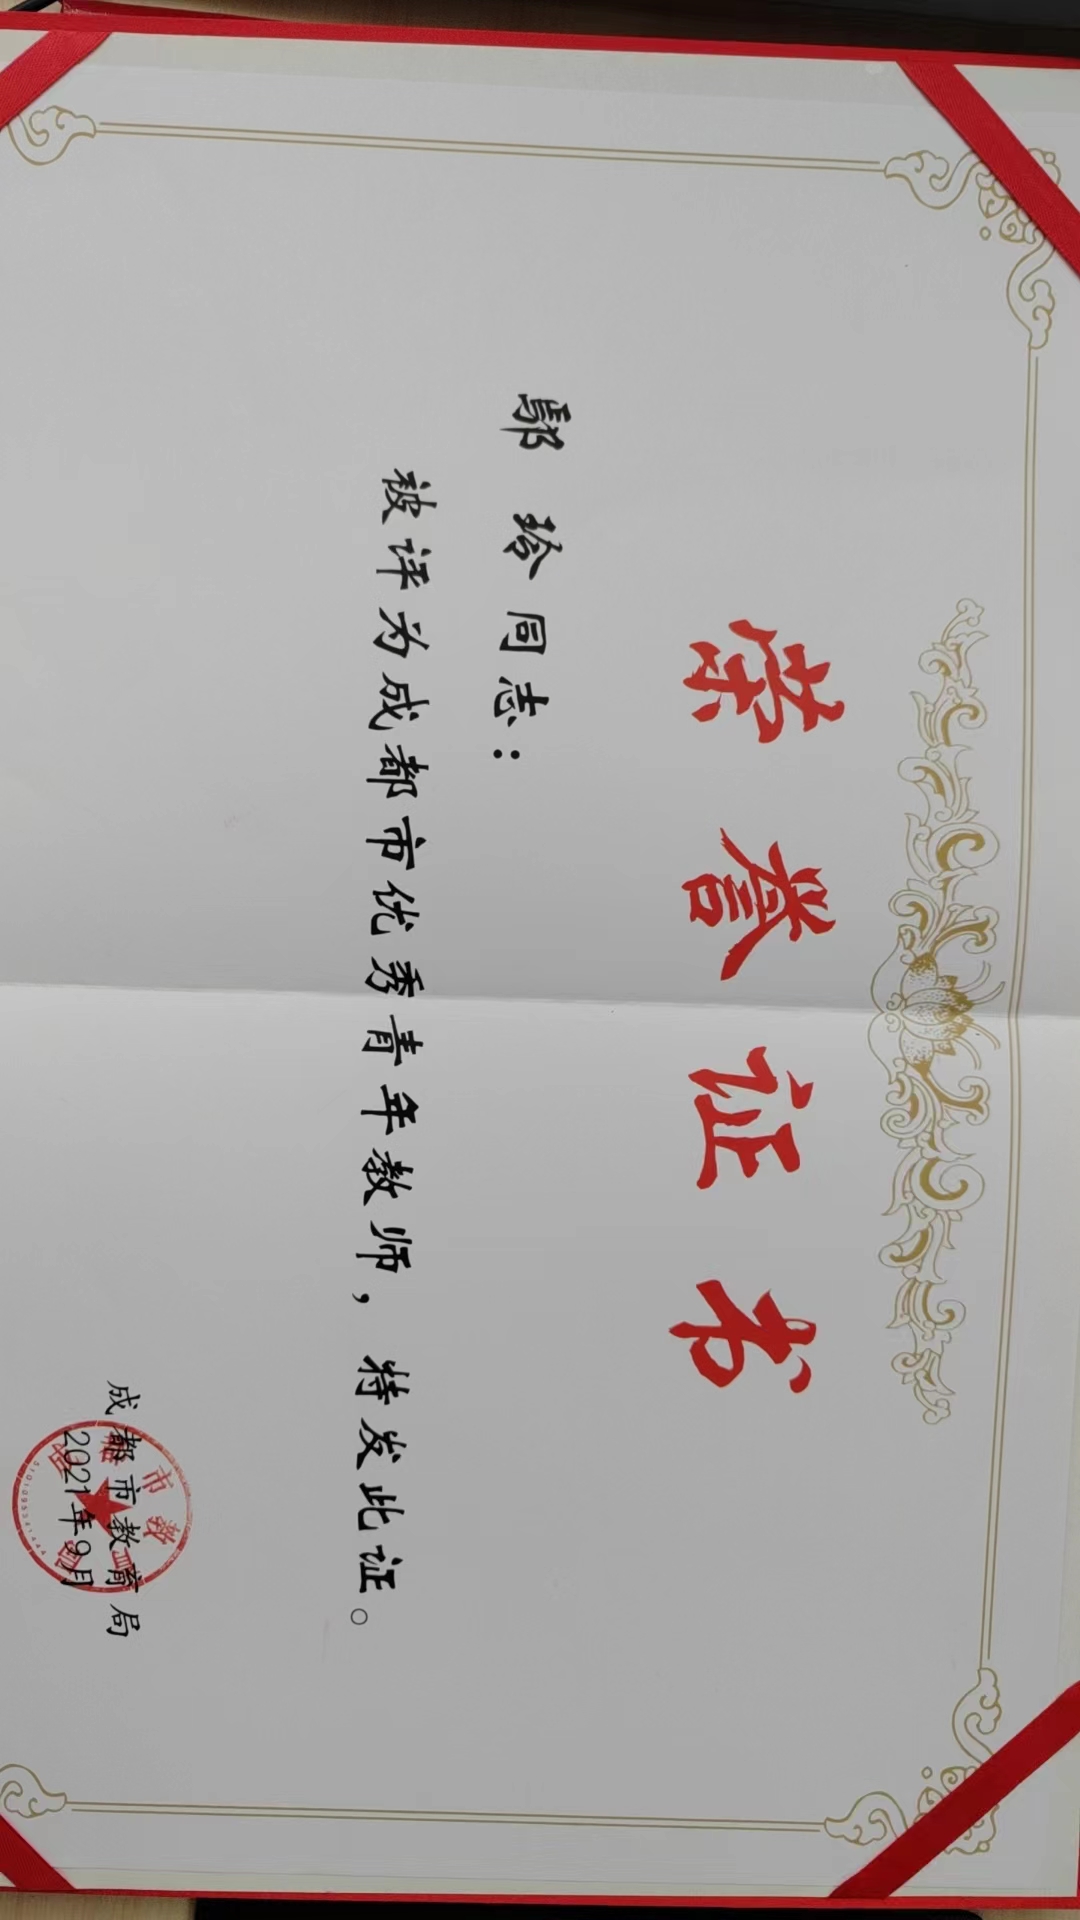 荣誉证书
鄢 玲同志：
被评为成都市优秀青年教师，特发此证。
成都市教育局
2021年9月